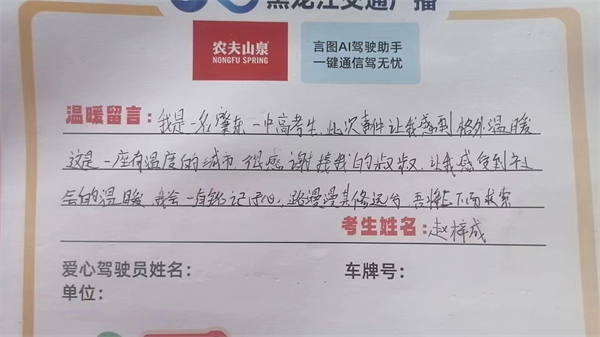 黑龙江交通广播
农夫山泉
NONGFU SPRING
言图AI驾驶助手
一键通信驾无忧
温暖留言：我是一名肇东一中高考生，此次事件让我感到格外温暖
这是一座有温度的城市，很感谢接我的叔叔，让我感受到社
会的温暖，我会一直铭记于心，路漫漫其修远兮，吾将上下而求索
考生姓名：赵梓成
爱心驾驶员姓名：
车牌号：
单位：